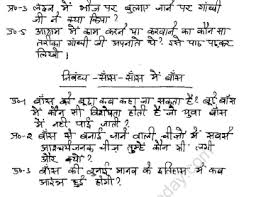 प्र०-3 लंदन में भोज पर बुलाए जाने पर गाँधी
जी ने क्या किया?
प्र०-5 आश्रम में काम करने या करवाने का कौन सा
तरीका गाँधी जी अपनाते थे? इसे पाठ पढ़कर
लिखो।
निबन्ध-साँस-साँस में बाँस
प्र०-1 बाँस को बूढ़ा कब कहा जा सकता है? बूढ़े बाँस
में कौन सी विशेषता होती है जो युवा बाँस
में नहीं पाई जाती?
प्र०-2 बाँस से बनाई जाने वाली चीज़ों में सबसे
आश्चर्यजनक चीज़ तुम्हें कौन सी लगी
और क्यों?
प्र०-3 बाँस की बुनाई मानव के इतिहास में कब
आरंभ हुई होगी?